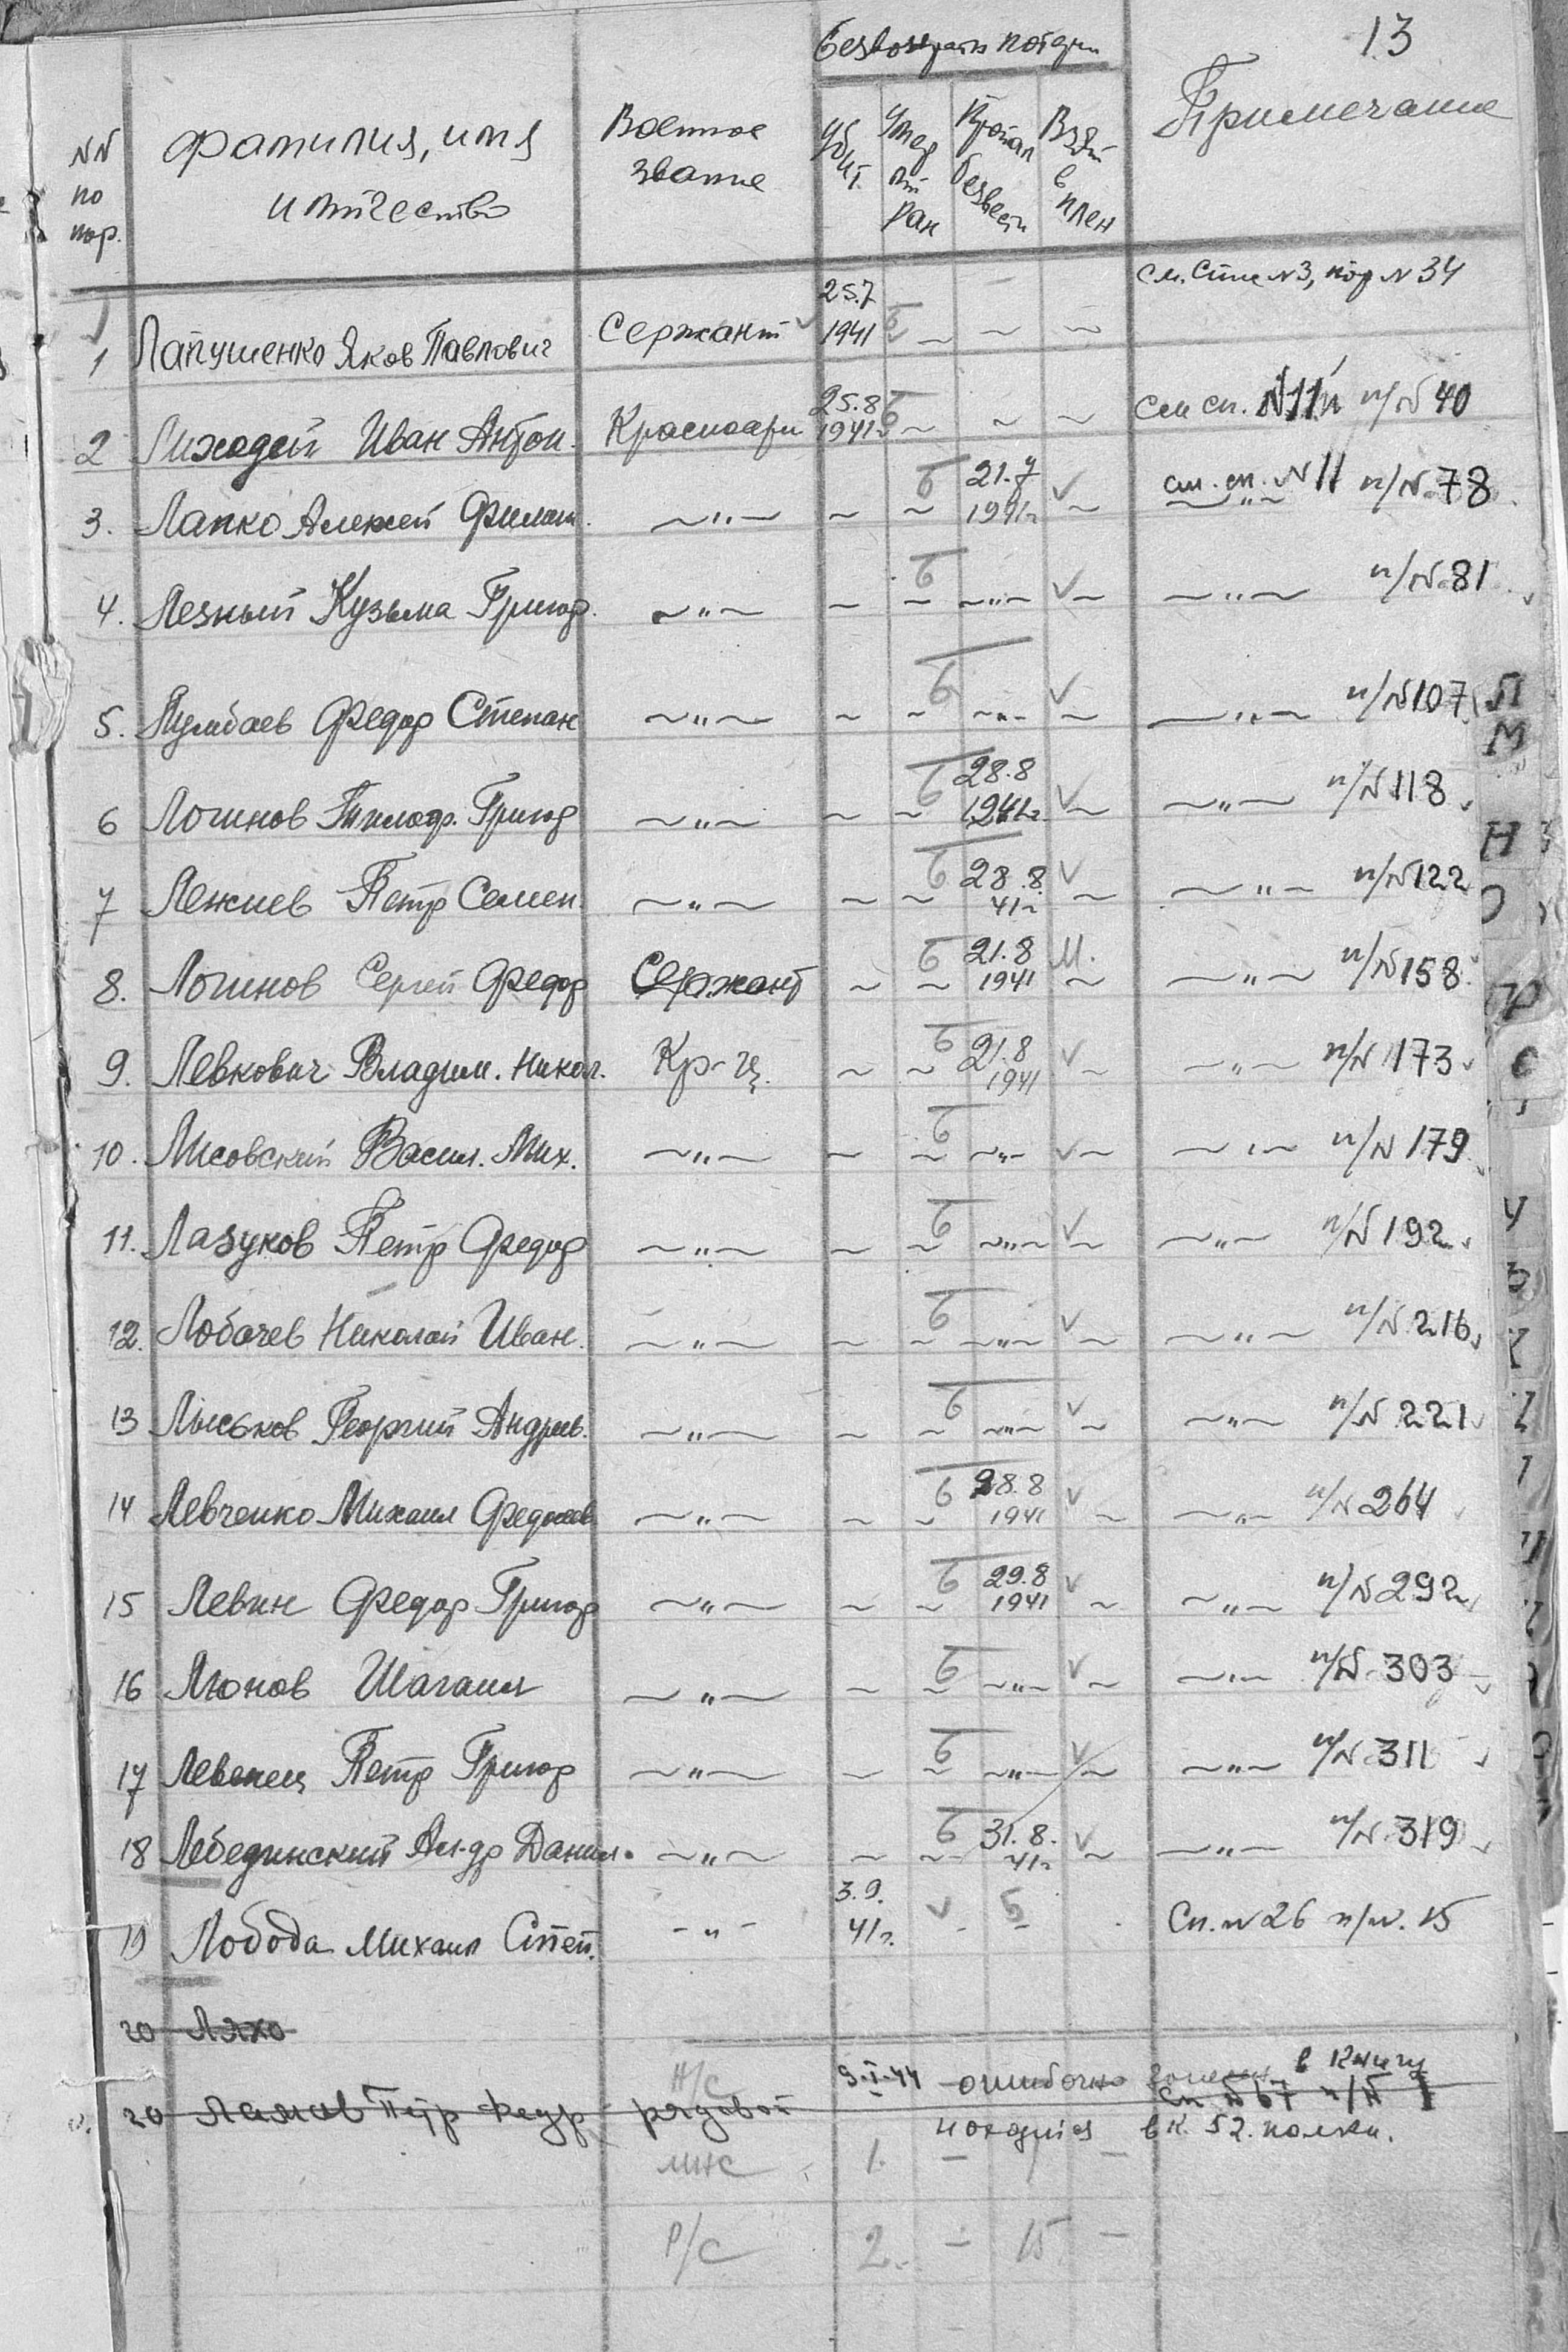 13
Безвозврат потери
NN по пор.
Фамилия, имя и отчество
Военное звание
Убит.
Умер от ран
Пропал безвести
Взят в плен
Примечание
1 Лапушенко Яков Павлович Сержант 25.7 1941 ~ ~ ~ см. спис N3, пор N 34
2 Лиходей Иван Антон. Красноарм 25.8 1941г ~ ~ ~ см сп. N11 п/N 40
3. Лапко Алексей Филат. ~"~ ~ ~ б 21.7 1941г ~ см. сп. N 11 п/N 78
4. Лезный Кузьма Григор. ~"~ ~ ~ б ~"~ ~ ~"~ п/N 81
5. Лумбаев Федор Степан ~"~ ~ ~ б ~"~ ~ ~"~ п/N 107
6 Логинов Григор ~"~ ~ ~ б 28.8 1941г. ~ ~"~ п/N 118
7 Лежнев Петр Семен. ~"~ ~ ~ б 28.8. 41г ~ ~"~ п/N 122
8. Логинов Сергей Федор Сержант ~ ~ б 21.8 1941 ~ ~"~ п/N 158
9. Левкович Владим. Никол. Кр-ц. ~ ~ б 21.8 1941 ~ ~"~ п/N 173
10. Лисовский Васил. Мих. ~"~ ~ ~ б ~"~ ~ ~"~ п/N 179
11. Лазуков Петр Федор ~"~ ~ ~ б ~"~ ~ ~"~ п/N 192
12. Лобачев Николай Иван. ~"~ ~ ~ б ~"~ ~ ~"~ п/N 216
13 Лыськов Георгий Андреев. ~"~ ~ ~ б ~"~ ~ ~"~ п/N 221
14 Левченко Михаил ~"~ ~ ~ б 28.8 1941 ~ ~"~ п/N 264
15 Левин Федор Григор ~"~ ~ ~ б 29.8 1941 ~ ~"~ п/N 292
16 Люнов Шагаил ~"~ ~ ~ б ~"~ ~ ~"~ п/N 303
17 Левенец Петр Григор ~"~ ~ ~ б ~"~ ~ ~"~ п/N 311
18 Лебединский Ал-др Данил. ~"~ ~ ~ б 31.8. 41г ~ ~"~ п/N 319
19 Лобода Михаил Степ. -"- 3.9. 41г. - Сп. N 26 п/N. 15
20 Ляхо
20 Ламов Петр Федр Н/С рядовой 9-I-44 ошибочно в книгу
Сп N 67 п/N 1
находится в к. 52. полка.
МНС 1. - 1 -
Р/С 2. - 15 -
Л
М
Н
О
П
Р
С
У